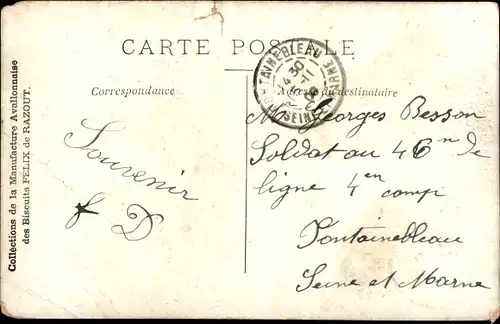 CARTE POSTALE
Correspondance
Adresse du destinataire
Collections de la Manufacture Avallonnaise
des Biscuits FÉLIX de RAZOUT.
FONTAINEBLEAU
SEINE
30
11
Souvenir
D
M Georges Besson
Soldat au 46 de
ligne 4 en comp
Fontainebleau
Seine et Marne